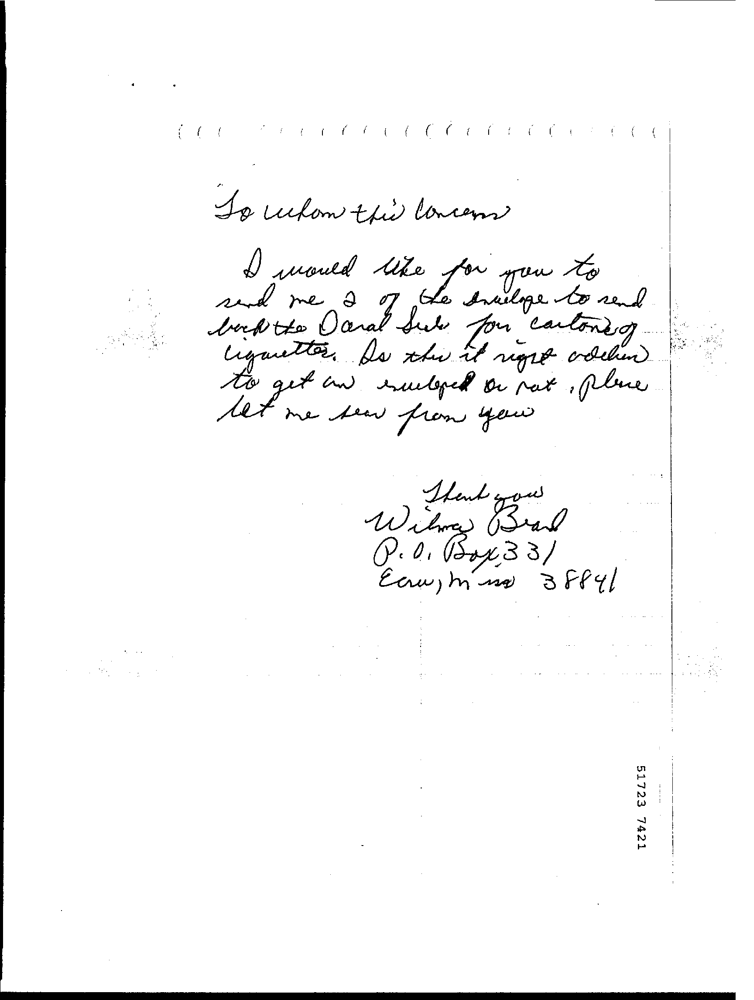 To whom this Concerns
I would like for you to
send me 2 of the envelope to send
back the Doral Seals for cartons of
Cigarettes. Is this it right address
to get an enveloped or not, please
let me hear from you
Thank you
Wilma Beard
P.O. Box 331
Ecru, Miss 38841
51723 7421